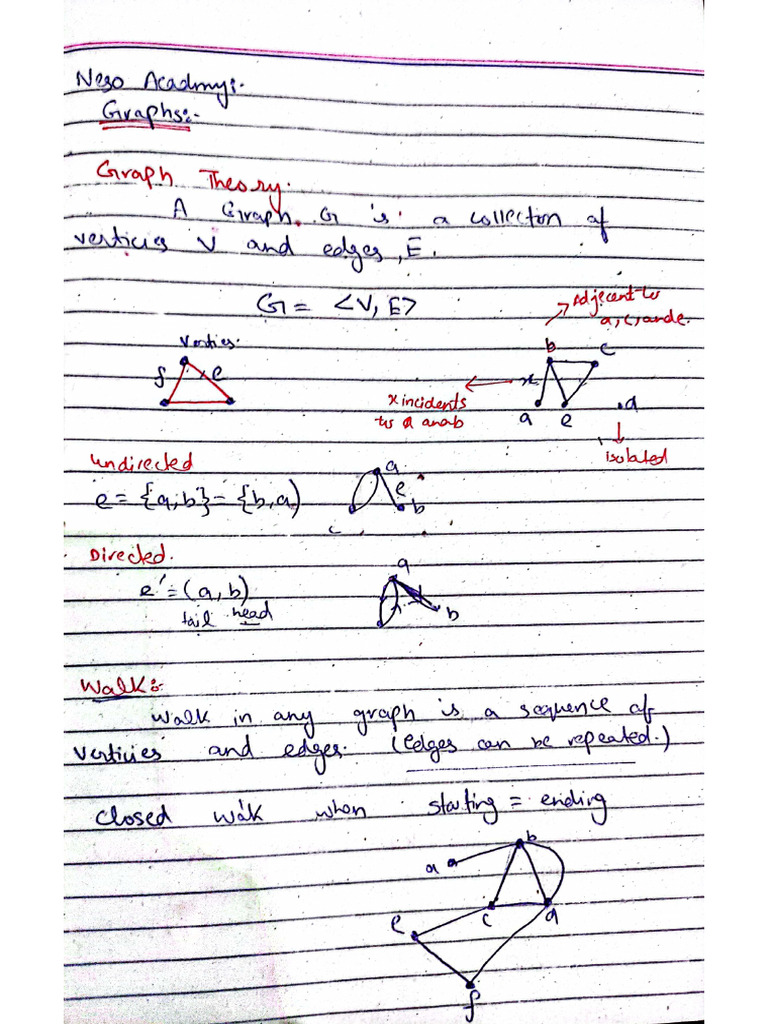 Neso Acadmy:-
Graphs:-
Graph Theory.
A Graph G is a collecton of
verticies V and edges, E.
G = <V, E>
Adjecent to
a, c, and e.
Verties
f
e
b
c
x
x incidents
to a anab
a
e
d
isolated
undirected
e = {a, b} = {b, a)
a
e
b
c
Directed.
e' = (a, b)
tail head
a
b
Walk:-
Walk in any graph is a sequence of
verticies and edges. (edges can be repeated.)
closed walk when starting = ending
b
a
c
d
e
f